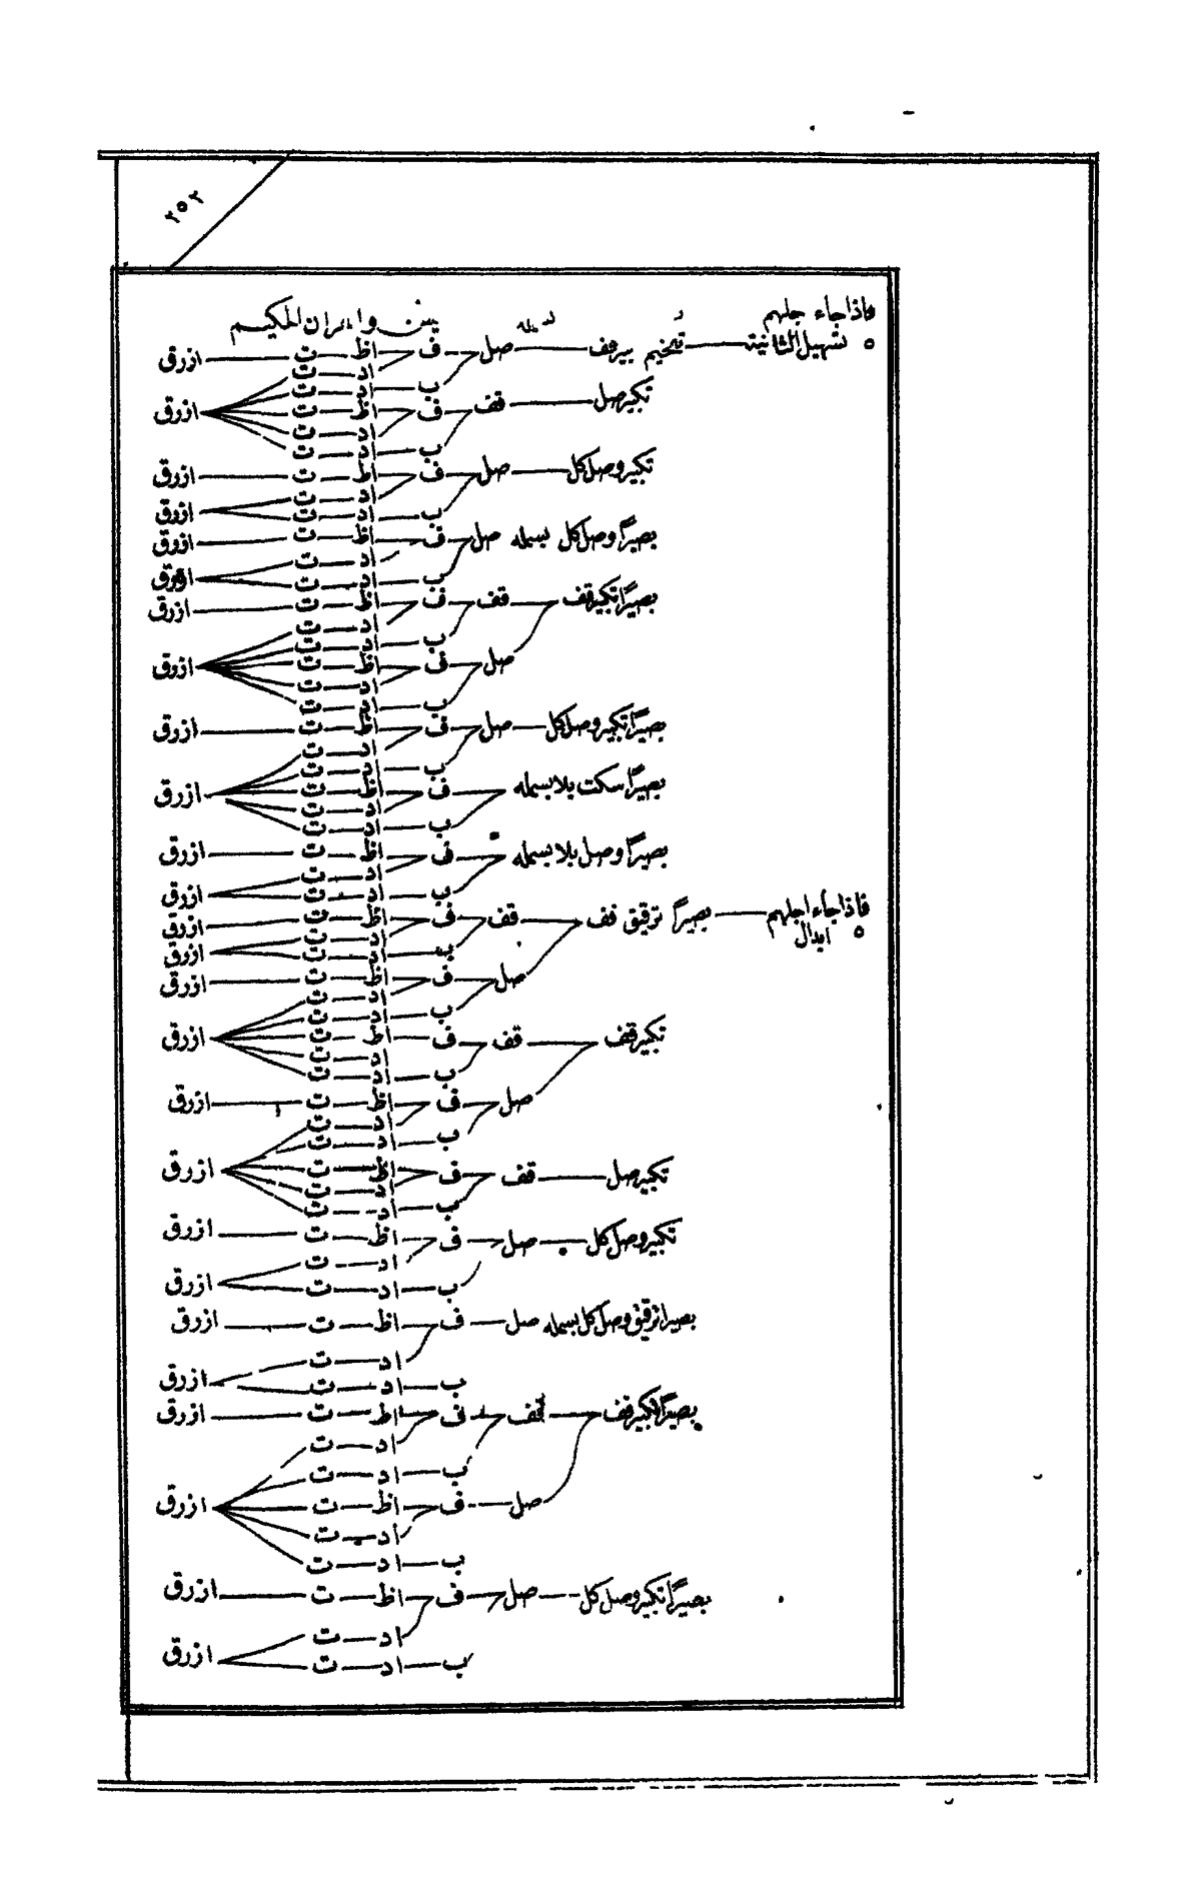 ٢٥٢
فاذا جاء جلهم يس والقران الحكيم
٥ تسهيل الثانية تفخيم صل ف اظ ت ازرق
اد ت
ب اد ت
تكبير صل قف ف اظ ت ازرق
اد ت
ب اد ت
تكبير وصل كل صل ف اظ ت ازرق
اد ت
ب اد ت ازرق
بصيرا وصل كل بسمله صل ف اظ ت ازرق
اد ت
ب اد ت ازرق
بصيرا تكبير قف قف ف اظ ت ازرق
اد ت
ب اد ت
صل ف اظ ت ازرق
اد ت
ب اد ت
بصيرا تكبير وصل كل صل ف اظ ت ازرق
اد ت
ب اد ت
بصيرا سكت بلا بسمله ف اظ ت ازرق
اد ت
ب اد ت
بصيرا وصل بلا بسمله ف اظ ت ازرق
اد ت
ب اد ت ازرق
فاذا جاء اجلهم بصيرا ترقيق قف قف ف اظ ت ازرق
٥ ابدال
اد ت
ب اد ت ازرق
صل ف اظ ت ازرق
اد ت
ب اد ت
تكبير قف قف ف اظ ت ازرق
اد ت
ب اد ت
صل ف اظ ت ازرق
اد ت
ب اد ت
تكبير صل قف ف اظ ت ازرق
اد ت
ب اد ت
تكبير وصل كل صل ف اظ ت ازرق
اد ت
ب اد ت ازرق
بصيرا ترقيق وصل كل بسمله صل ف اظ ت ازرق
اد ت
ب اد ت ازرق
بصيرا تكبير قف قف ف اظ ت ازرق
اد ت
ب اد ت
صل ف اظ ت ازرق
اد ت
ب اد ت
بصيرا تكبير وصل كل صل ف اظ ت ازرق
اد ت
ب اد ت ازرق